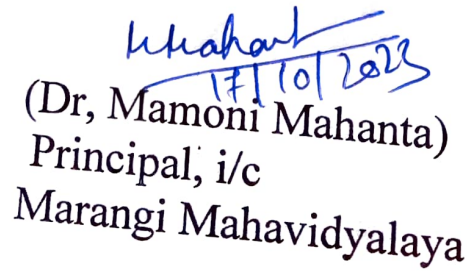 17/10/2023
(Dr, Mamoni Mahanta)
Principal, i/c
Marangi Mahavidyalaya